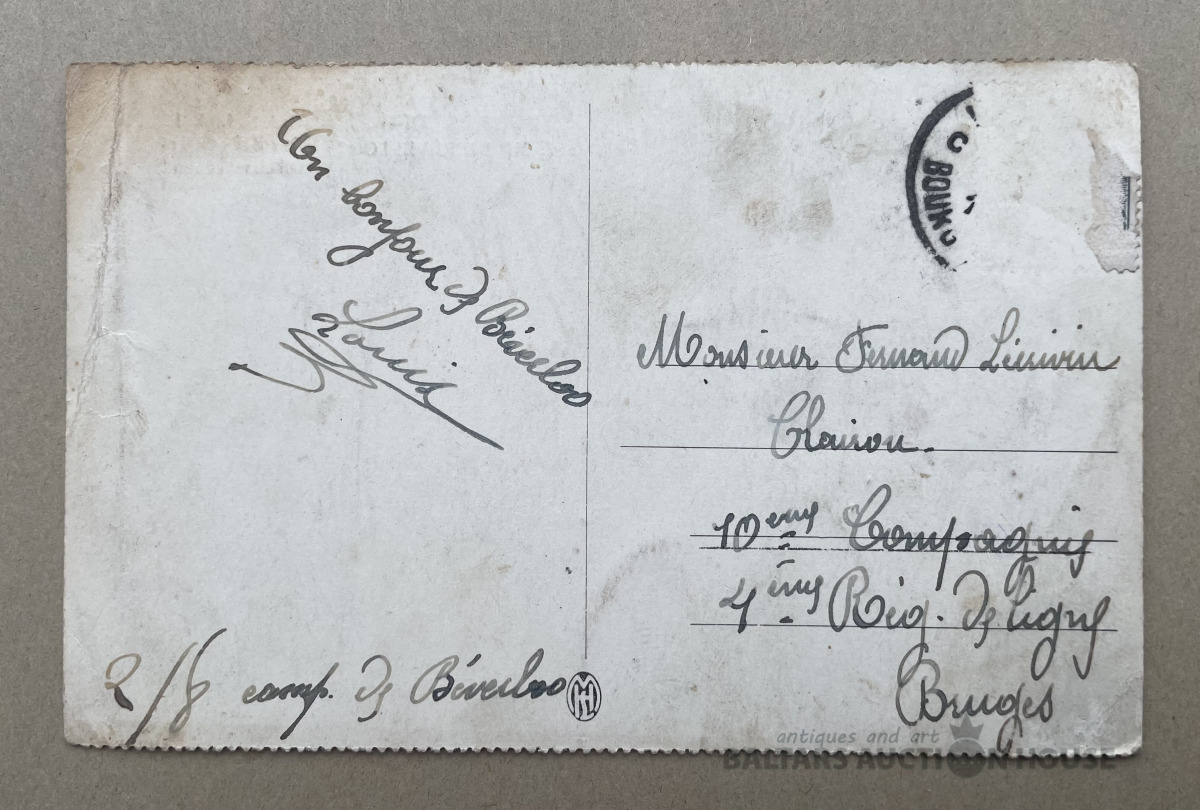 Un bonjour de Béverloo
Louis
2/8 camp. de Béverloo
Monsieur Fernand
Clairon.
10eme Compagnie
4ème Rég. de ligne
Bruges
antiques and art
BALTARS AUCTION HOUSE